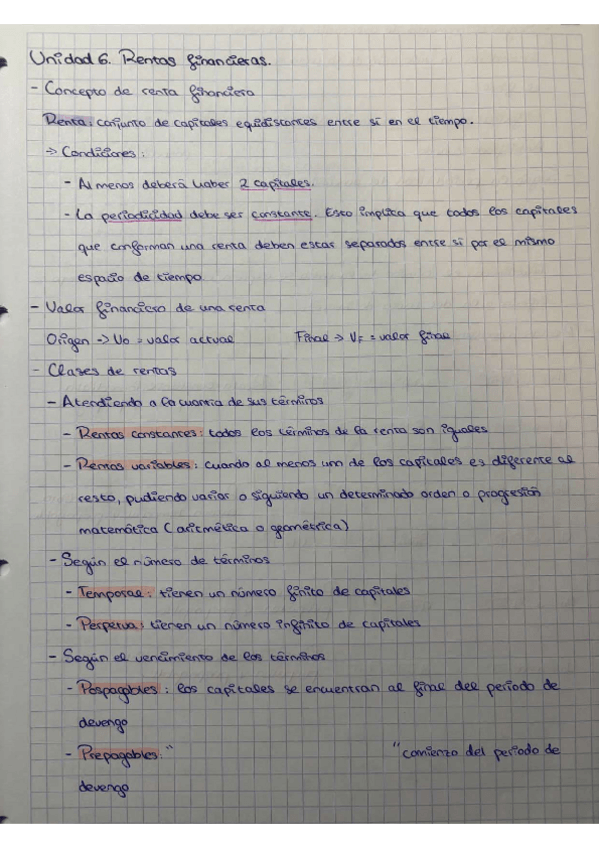 Unidad 6. Rentas financieras.
- Concepto de renta financiera
Renta: conjunto de capitales equidistantes entre sí en el tiempo.
→ Condiciones:
- Al menos deberá haber 2 capitales.
- La periodicidad debe ser constante. Esto implica que todos los capitales
que conforman una renta deben estar separados entre si por el mismo
espacio de tiempo.
- Valor financiero de una renta
Origen -> V0 = valor actual Final → VF = valor final
- Clases de rentas
- Atendiendo a la cuantia de sus términos
- Rentas constantes: todos los términos de la renta son iguales
- Rentas variables: cuando al menos uno de los capitales es diferente al
resto, pudiendo variar o siguiendo un determinado orden o progresión
matemática (aritmética o geométrica)
- Según el número de términos
- Temporal: tienen un número finito de capitales
- Perpetua: tienen un número infinito de capitales
- Según el vencimiento de los términos
- Pospagables: los capitales se encuentran al final del período de
devengo
- Prepagables: " " comienzo del período de
devengo